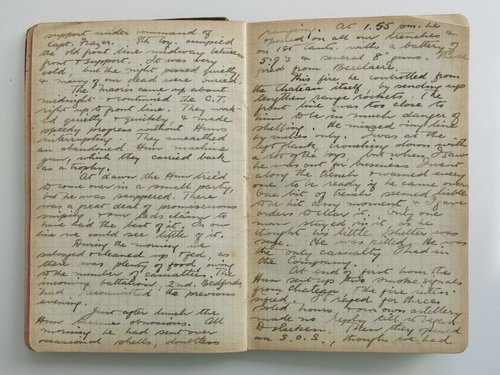 support under command of
Capt. Fraser. 8th Coy. occupied
the old front line midway between
front & support. It was very
cold, but the night passed quietly
& many of our dead were buried.
The Maoris came up about
midnight & continued the C.T.
right up to front line. They work-
ed quietly & quickly & made
speedy progress without Hun's
interruption. They unearthed
an abandoned Hun machine
gun, which they carried back
as a trophy.
At dawn the Hun tried
to come over in a small party,
but he was dispersed. There
was a great deal of promiscuous
sniping & our lads claim to
have had the best of it. In our
line we could see little of it.
During the morning we
salvaged & cleaned up & fed, as
there was plenty of food owing
to the number of casualties. The
morning battalion 2nd. Bedfords
had the previous
evening.
Just after lunch the
Hun became obnoxious. All
morning he had sent over
occasional shells, doubtless
ranging. At 1.55 pm. he
opened on all our trenches &
on 1st Cants. with a battery of
5.9's & several 8" guns.
fired from Becelaere.
This fire he controlled from
the Chateau itself by sending up
lengthen range rockets. The
front line was too close to
him to be in much danger of
shelling. He missed my line
by inches only. I was at the
left flank, crouching down with
a lot of the boys but when I saw
he was out for business I went
along the trench & warned every-
one to be ready if he came over.
One bit of trench seemed liable
to be hit any moment & I gave
orders to clear it. Only one
man stayed in it as he
thought his little shelter was
safe. He was killed. He was
the only casualty I had in
the Company.
At end of first hour the
Hun sent up two smoke signals
from Chateau & the fire inten-
sified. It raged for three
solid hours & our own artillery
made no reply till it began
to slacken. Then they opened
an S.O.S., though we had